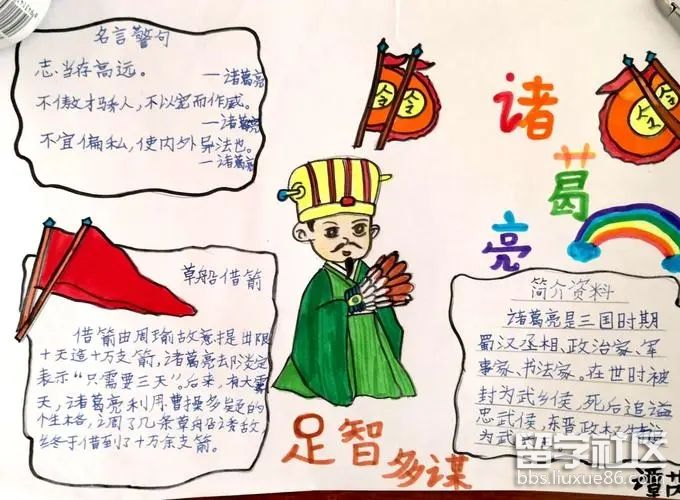 名言警句
志当存高远。
—诸葛亮
不傲才以骄人，不以宠而作威。
—诸葛亮
不宜偏私，使内外异法也。
—诸葛亮
诸
葛
亮
草船借箭
借箭由周瑜故意提出限
十天造十万支箭，诸葛亮却淡定
表示“只需要三天”。后来，有大雾
天，诸葛亮利用曹操多疑的
个性格，调了几条草船诱敌
终于借到了十万余支箭。
足智
多谋
简介资料
诸葛亮是三国时期
蜀汉丞相、政治家、军
事家、书法家。在世时被
封为武乡侯，死后追谥
忠武侯，东晋政权
为武
留学社区
bbs.liuxue86.com